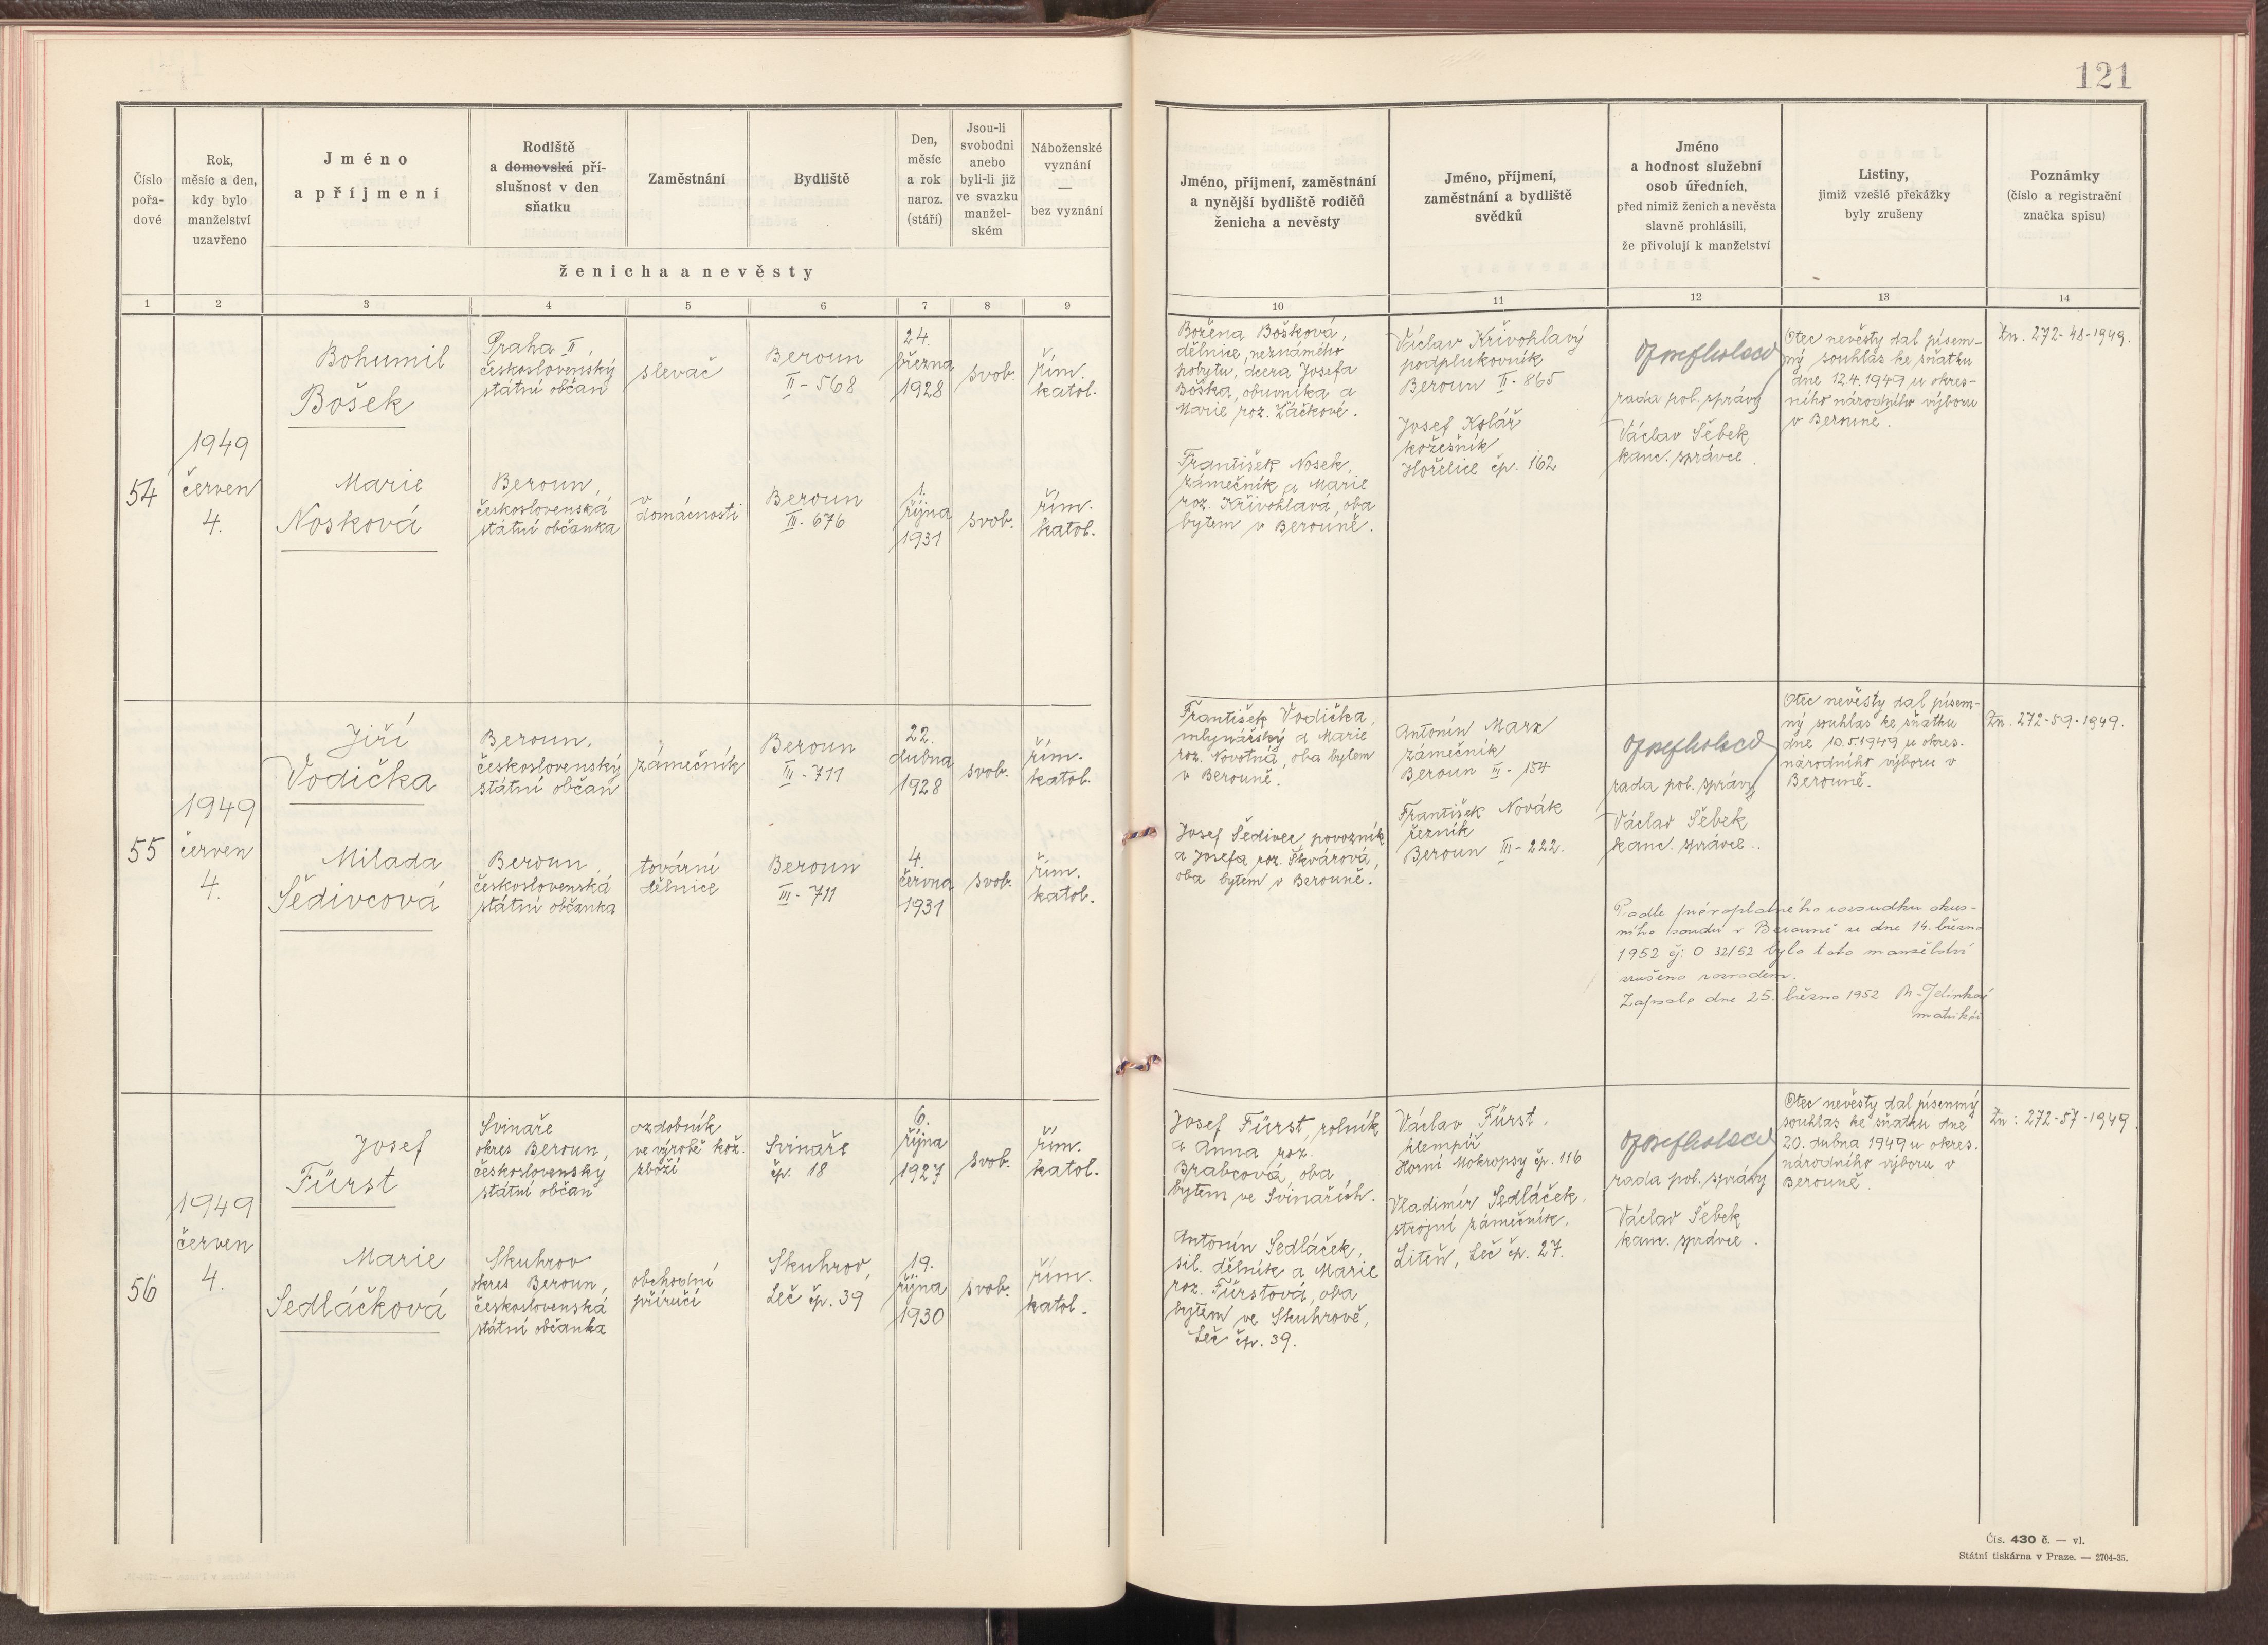 121
Číslo
pořa-
dové
Rok,
měsíc a den,
kdy bylo
manželství
uzavřeno
Jméno
a příjmení
Rodiště
a domovská pří-
slušnost v den
sňatku
Zaměstnání
Bydliště
Den,
měsíc
a rok
naroz.
(stáří)
Jsou-li
svobodni
anebo
byli-li již
ve svazku
manžel-
ském
Náboženské
vyznání
—
bez vyznání
ženicha a nevěsty
Jméno, příjmení, zaměstnání
a nynější bydliště rodičů
ženicha a nevěsty
Jméno, příjmení,
zaměstnání a bydliště
svědků
Jméno
a hodnost služební
osob úředních,
před nimiž ženich a nevěsta
slavně prohlásili,
že přivolují k manželství
Listiny,
jimiž vzešlé překážky
byly zrušeny
Poznámky
(číslo a registrační
značka spisu)
1 2 3 4 5 6 7 8 9 10 11 12 13 14
54
1949
červen
4.
Bohumil
Bošek
Praha II,
československý
státní občan
slevač
Beroun
II - 568
24.
března
1928
svob.
řím.
katol.
Marie
Nosková
Beroun,
československá
státní občanka
v domácnosti
Beroun
III. 676
1.
října
1931
svob.
řím.
katol.
Božena Bošková,
dělnice, neznámého
pobytu, dcera Josefa
Boška, obuvníka a
Marie roz. Žáčkové.
František Nosek,
zámečník a Marie
roz. Křivohlavá, oba
bytem v Berouně.
Václav Křivohlavý
podplukovník
Beroun II. 865
Josef Kolář
kožešník
Hořelice čp. 162
rada pol. správy
Václav Šebek
kanc. správce.
Otec nevěsty dal písem-
ný souhlas ke sňatku
dne 12.4.1949 u okres-
ního národního výboru
v Berouně.
Zn. 272-48-1949.
55
1949
červen
4.
Jiří
Vodička
Beroun,
československý
státní občan
zámečník
Beroun
III - 711
22.
dubna
1928
svob.
řím.
katol.
Milada
Šedivcová
Beroun,
československá
státní občanka
tovární
dělnice
Beroun
III - 711
4.
června
1931
svob.
řím.
katol.
František Vodička,
mlynářský a Marie
roz. Novotná, oba bytem
v Berouně.
Josef Šedivec, povozník
a Josefa roz. Škvárová,
oba bytem v Berouně.
Antonín Marx
zámečník
Beroun III - 154
František Novák
řezník
Beroun III - 222.
rada pol. správy
Václav Šebek
kanc. správce.
Otec nevěsty dal písem-
ný souhlas ke sňatku
dne 10.5.1949 u okres.
národního výboru v
Berouně.
Zn. 272-59-1949.
Podle právoplatného rozsudku okres-
ního soudu v Berouně ze dne 14. března
1952 čj: O 32/52 bylo toto manželství
zrušeno rozvodem.
Zapsala dne 25. března 1952 M. Jelínková
56
1949
červen
4.
Josef
Fürst
Svinaře
okres Beroun,
československý
státní občan
ozdobník
ve výrobě kož.
zboží
Svinaře
čp. 18
6.
října
1927
svob.
řím.
katol.
Marie
Sedláčková
Skuhrov
okres Beroun,
československá
státní občanka
obchodní
příručí
Skuhrov,
Leč čp. 39
19.
října
1930
svob.
řím.
katol.
Josef Fürst, rolník
a Anna roz.
Brabcová, oba
bytem ve Svinařích.
Antonín Sedláček,
sil. dělník a Marie
roz. Fürstová, oba
bytem ve Skuhrově,
Leč čp. 39.
Václav Fürst,
klempíř
Horní Mokropsy čp. 116
Vladimír Sedláček,
strojní zámečník,
Liteň, Leč čp. 27.
rada pol. správy
Václav Šebek
kanc. správce.
Otec nevěsty dal písemný
souhlas ke sňatku dne
20. dubna 1949 u okres.
národního výboru v
Berouně.
Zn: 272-57-1949
Čís. 430 č. — vl.
Státní tiskárna v Praze. — 2704-35.